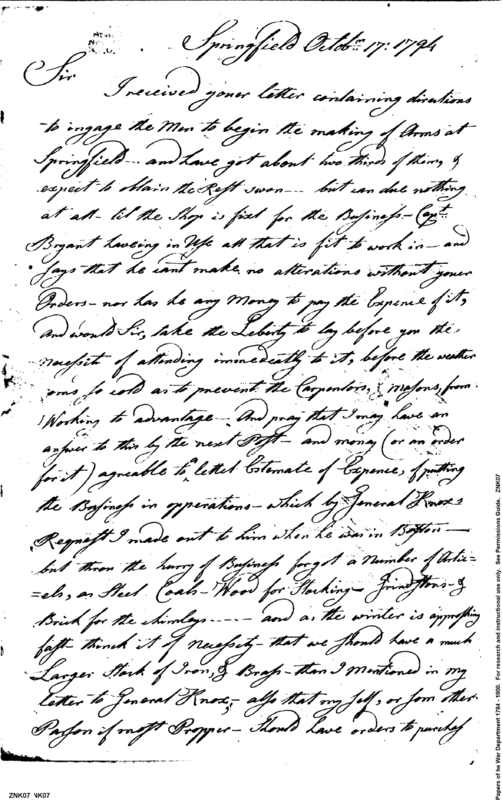 Springfield Octobr. 17: 1794
Sir
I received youer letter containing directions
to ingage the Men to begin the making of Arms at
Springfield -- and have got about two thirds of them, &
expect to obtain the Rest soon --- but can due nothing
at all - til the Shop is fixt for the Business - Capt.
Bryant haveing in Use all that is fit to work in - and
says that he cant make no alterations without youer
Orders - nor has he any Money to pay the Expence of it,
And would Sir, take the Leberty to lay before you the
necessity of attending immediectly to it, before the wether
coms so cold as to prevent the Carpentors, & masons, from
Working to advantage - And pray that I may have an
answer to this by the next Post - and money (or an order
for it) agreable to a lettel Estemate of Expence, of putting
the Business in opperations - which by General Knox's
Request I made out to him when he was in Boston -
but throu the hurry of Business forgot a Number of Artic=
=els, as Steel Coals - Wood for Stocking - Grindstons - &
Brick for the chimleys ----- and as the winter is approching
fast think it of Necessety - that we should have a much
Larger Stock of Iron, & Brass - than I Mentioned in my
letter to General Knox, - also that my self, or som other
Parson if most Propper - Should have orders to purchas
Papers of the War Department 1784 - 1800. For research and instructional use only. See Permissions Guide. ZNK07
ZNK07 NK07